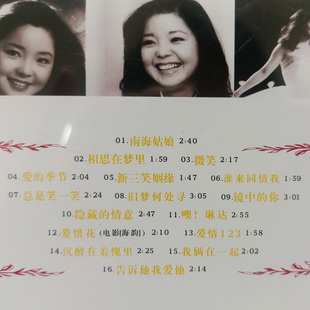 01.南海姑娘 2:40
02.相思在梦里 1:59 03.微笑 2:17
04.爱的季节 2:04 05.新三笑姻缘 1:47 06.谁来同情我 1:59
07.总是笑一笑 2:24 08.旧梦何处寻 3:05 09.镜中的你 3:01
10.隐藏的情意 2:47 11.噢！琳达 2:55
12.爱惜花(电影《海韵》) 2:10 13.爱情123 1:58
14.沉醉在羞愧里 2:25 15.我俩在一起 2:02
16.告诉他我爱他 2:14